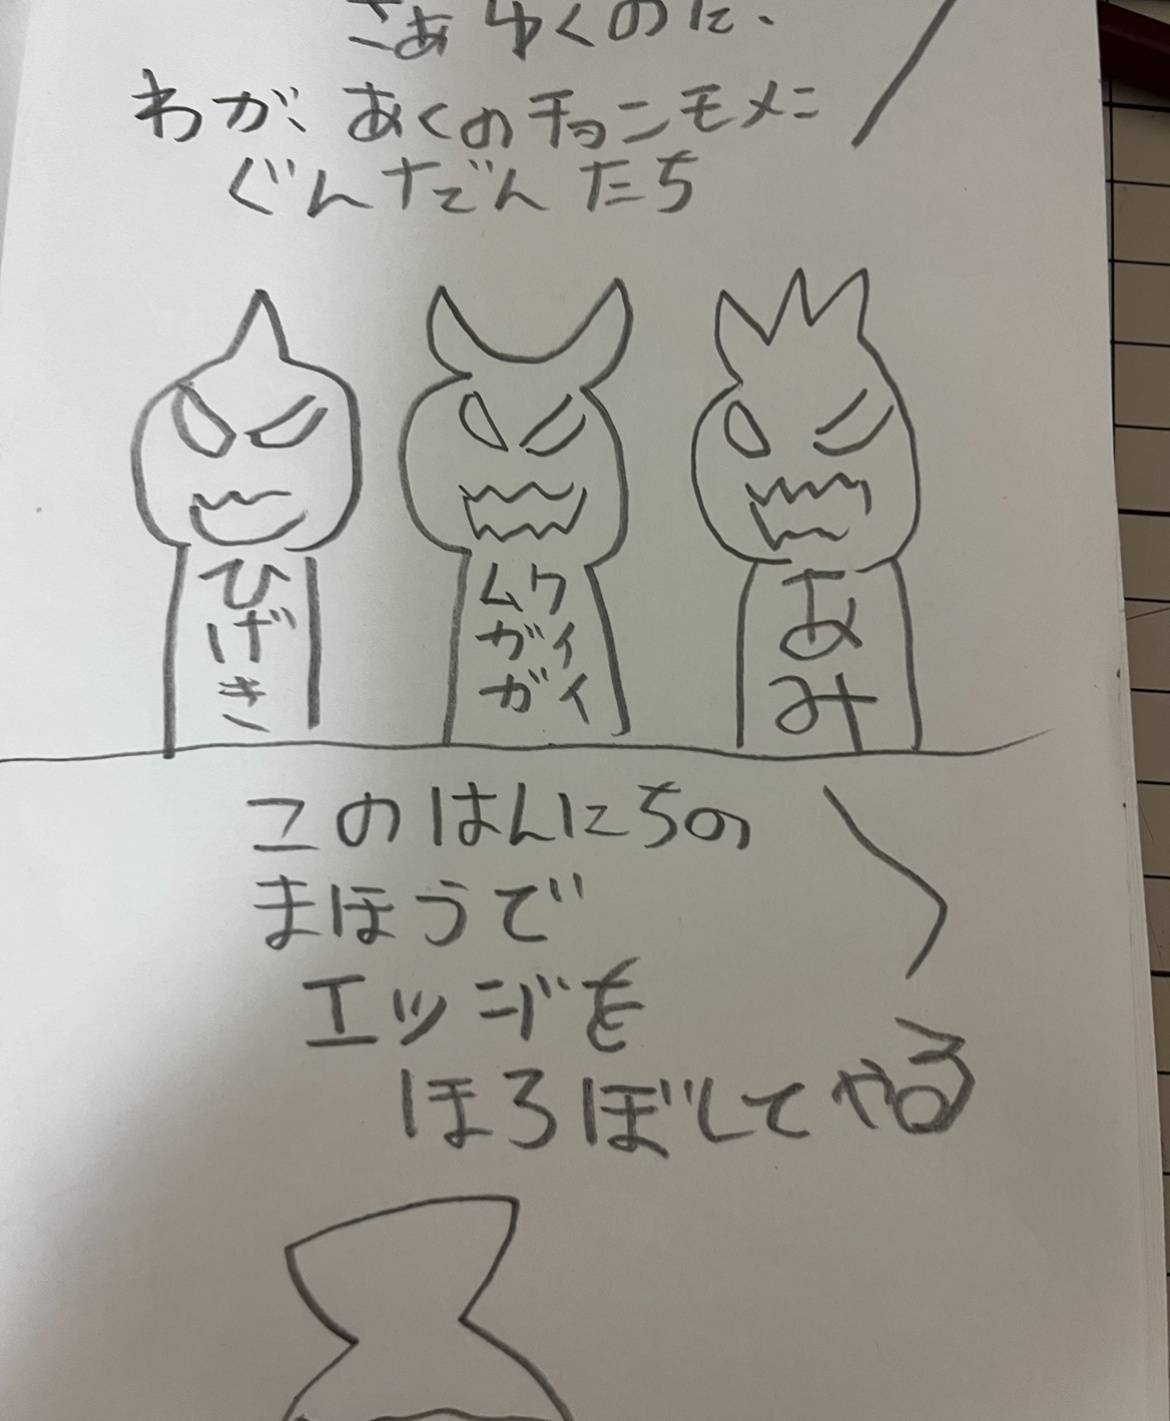 さあゆくのだ、
わが、あくのチョンモメン
ぐんだんたち
ひげき
ムガガ
ワイイ
あみ
このはんにちの
まほうで
エッジを
ほろぼしてやる